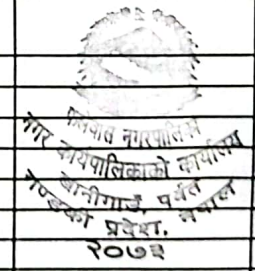 फलेवास नगरपालिका
नगर कार्यपालिकाको कार्यालय
खानीगाउँ, पर्वत
गण्डकी प्रदेश, नेपाल
२०७३